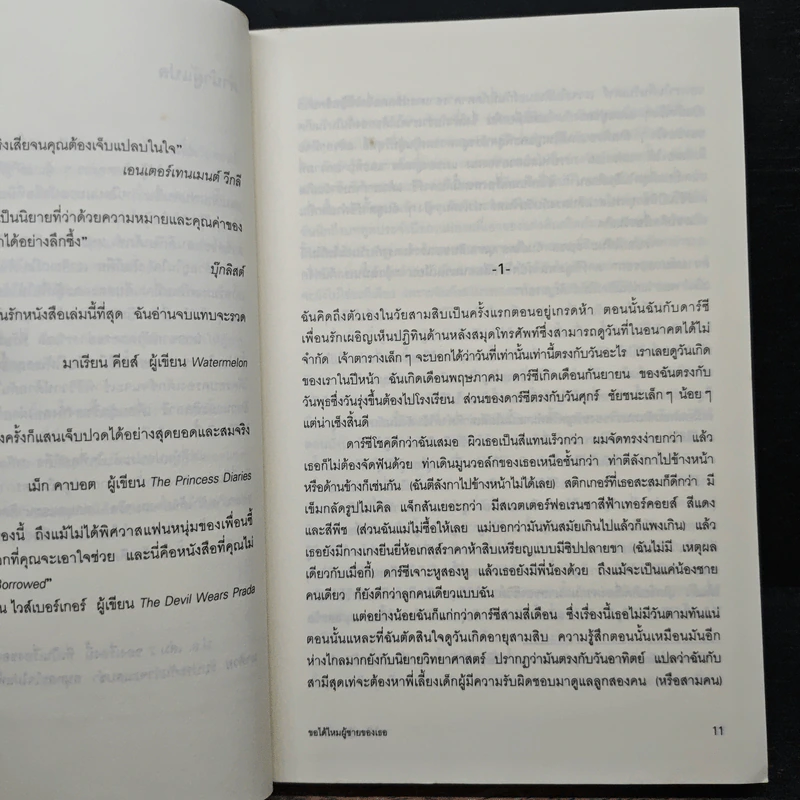 งเสียจนคุณต้องเจ็บแปลบในใจ"
เอนเตอร์เทนเมนต์ วีกลี
เป็นนิยายที่ว่าด้วยความหมายและคุณค่าของ
าได้อย่างลึกซึ้ง"
บุ๊กลิสต์
นรักหนังสือเล่มนี้ที่สุด ฉันอ่านจบแทบจะรวด
มาเรียน คียส์ ผู้เขียน Watermelon
งครั้งก็แสนเจ็บปวดได้อย่างสุดยอดและสมจริง
เม็ก คาบอต ผู้เขียน The Princess Diaries
องนี้ ถึงแม้ไม่ได้พิศวาสแฟนหนุ่มของเพื่อนซี้
อกที่คุณจะเอาใจช่วย และนี่คือหนังสือที่คุณไม่
Borrowed"
น ไวส์เบอร์เกอร์ ผู้เขียน The Devil Wears Prada
-1-
ฉันคิดถึงตัวเองในวัยสามสิบเป็นครั้งแรกตอนอยู่เกรดห้า ตอนนั้นฉันกับดาร์ซี
เพื่อนรักเผอิญเห็นปฏิทินด้านหลังสมุดโทรศัพท์ซึ่งสามารถดูวันที่ในอนาคตได้ไม่
จำกัด เจ้าตารางเล็กๆ จะบอกได้ว่าวันที่เท่านั้นเท่านี้ตรงกับวันอะไร เราเลยดูวันเกิด
ของเราในปีหน้า ฉันเกิดเดือนพฤษภาคม ดาร์ซีเกิดเดือนกันยายน ของฉันตรงกับ
วันพุธซึ่งวันรุ่งขึ้นต้องไปโรงเรียน ส่วนของดาร์ซีตรงกับวันศุกร์ ชัยชนะเล็กๆ น้อยๆ
แต่น่าเซ็งสิ้นดี
ดาร์ซีโชคดีกว่าฉันเสมอ ผิวเธอเป็นสีแทนเร็วกว่า ผมจัดทรงง่ายกว่า แล้ว
เธอก็ไม่ต้องจัดฟันด้วย ท่าเดินมูนวอล์กของเธอเหนือชั้นกว่า ท่าตีลังกาไปข้างหน้า
หรือด้านข้างก็เช่นกัน (ฉันตีลังกาไปข้างหน้าไม่ได้เลย) สติกเกอร์ที่เธอสะสมก็ดีกว่า มี
เข็มกลัดรูปไมเคิล แจ็กสันเยอะกว่า มีสเวตเตอร์ฟอเรนซาสีฟ้าเทอร์คอยส์ สีแดง
และสีพีช (ส่วนฉันแม่ไม่ซื้อให้เลย แม่บอกว่ามันทันสมัยเกินไปแล้วก็แพงเกิน) แล้ว
เธอยังมีกางเกงยีนยี่ห้อเกสส์ราคาห้าสิบเหรียญแบบมีซิปปลายขา (ฉันไม่มี เหตุผล
เดียวกับเมื่อกี้) ดาร์ซีเจาะหูสองหู แล้วเธอยังมีพี่น้องด้วย ถึงแม้จะเป็นแค่น้องชาย
คนเดียว ก็ยังดีกว่าลูกคนเดียวแบบฉัน
แต่อย่างน้อยฉันก็แก่กว่าดาร์ซีสามสี่เดือน ซึ่งเรื่องนี้เธอไม่มีวันตามทันแน่
ตอนนั้นแหละที่ฉันตัดสินใจดูวันเกิดอายุสามสิบ ความรู้สึกตอนนั้นเหมือนมันอีก
ห่างไกลมากยังกับนิยายวิทยาศาสตร์ ปรากฏว่ามันตรงกับวันอาทิตย์ แปลว่าฉันกับ
สามีสุดเท่จะต้องหาพี่เลี้ยงเด็กผู้มีความรับผิดชอบมาดูแลลูกสองคน (หรือสามคน)
ขอได้ไหมผู้ชายของเธอ 11